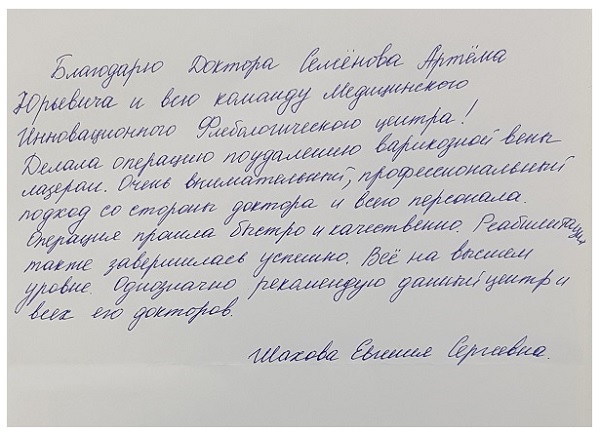 Благодарю Доктора Семёнова Артёма
Юрьевича и всю команду Медицинского
Инновационного Флебологического центра!
Делала операцию поудалению варикозной вены
лазером. Очень внимательный, профессиональный
подход со стороны доктора и всего персонала.
Операция прошла быстро и качественно. Реабилитация
также завершилась успешно. Всё на высшем
уровне. Однозначно рекомендую данный центр и
всех его докторов.
Шахова Евгения Сергеевна.